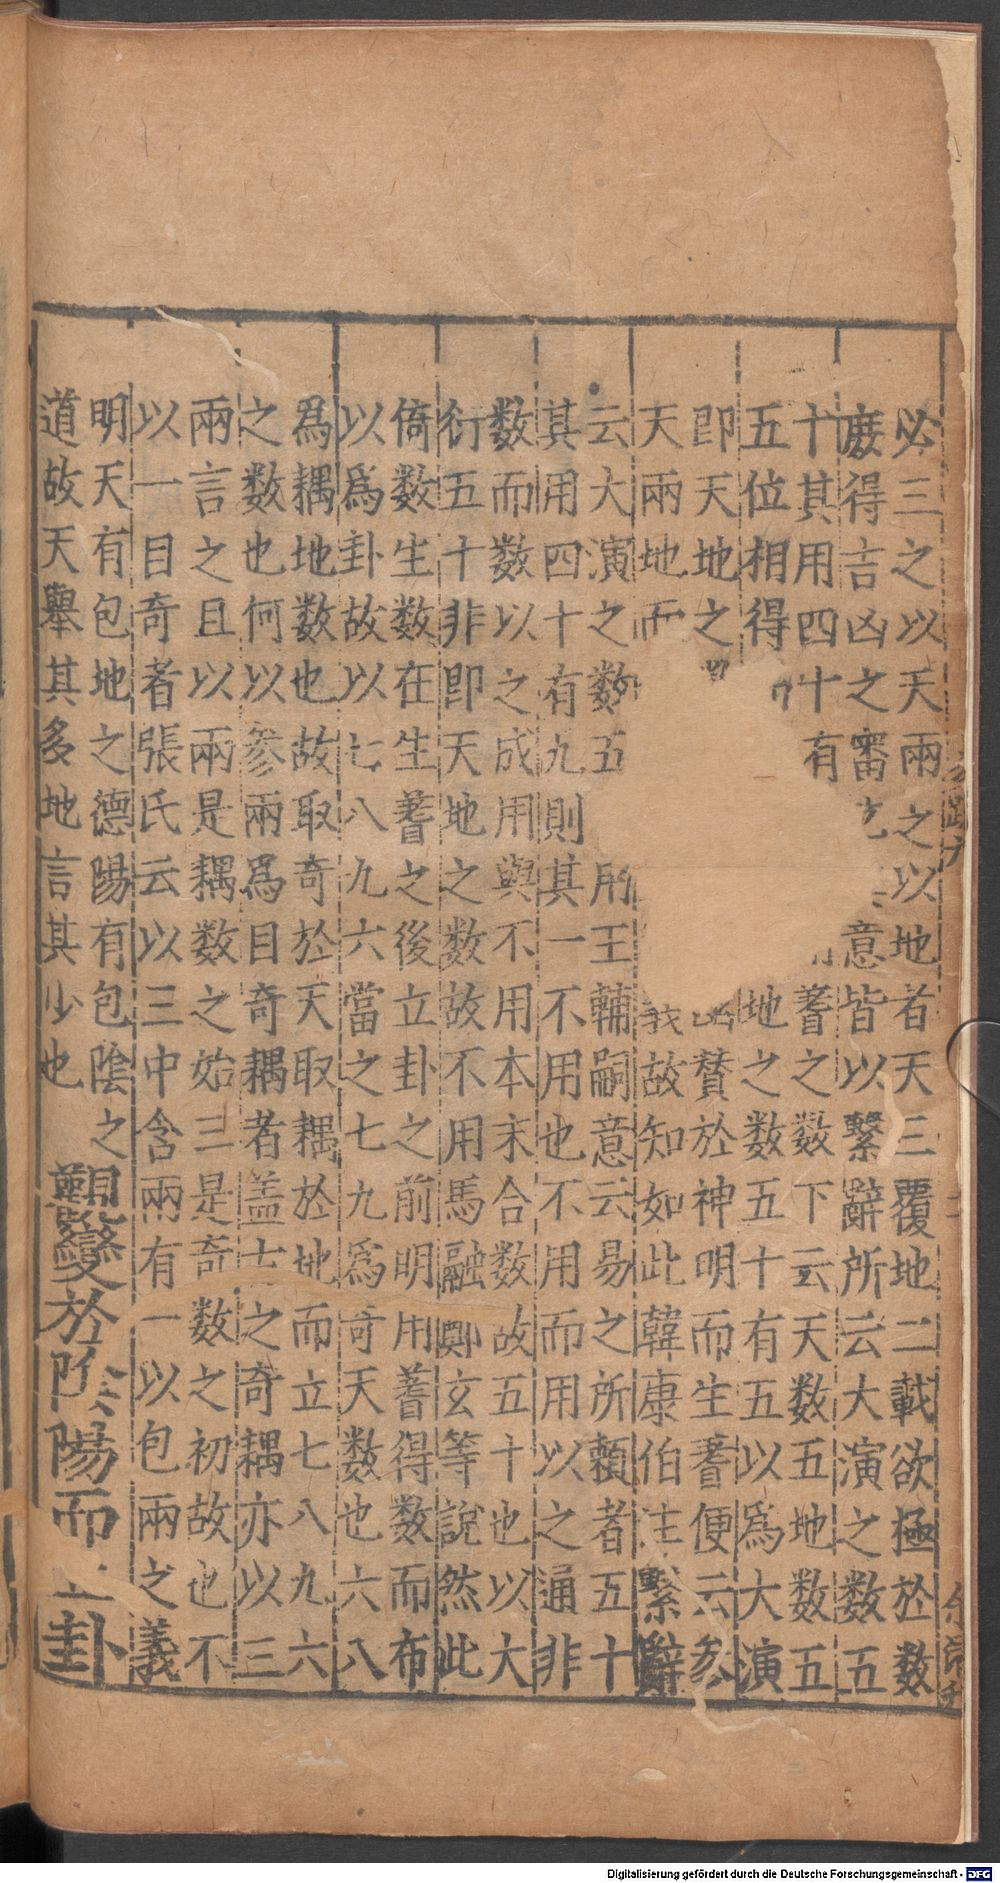 必三之以天兩之以地者天三覆地二載欲極於数
庶得吉凶之審也意皆以繫辭所云大演之数五
十其用四十有蓍之数下云天数五地数五
五位相得地之数五十有五以爲大演
即天地之贊於神明而生蓍便云参
天兩地而我故知如此韓康伯注繫辭
云大演之数五用王輔嗣意云易之所頼者五十
其用四十有九則其一不用也不用而用以之通非
数而数以之成用與不用本末合数故五十也以大
衍五十非即天地之数故不用馬融鄭玄等說然此
倚数生数在生蓍之後立卦之前明用蓍得数而布
以爲卦故以七八九六當之七九爲奇天数也六八
爲耦地数也故取奇於天取耦於地而立七八九六
之数也何以参兩爲目奇耦者盖古之奇耦亦以三
兩言之且以兩是耦数之始三是奇数之初故也不
以一目奇者張氏云以三中含兩有一以包兩之義
明天有包地之德陽有包陰之
道故天舉其多地言其少也
觀變於陰陽而立卦
Digitalisierung gefördert durch die Deutsche Forschungsgemeinschaft - DFG